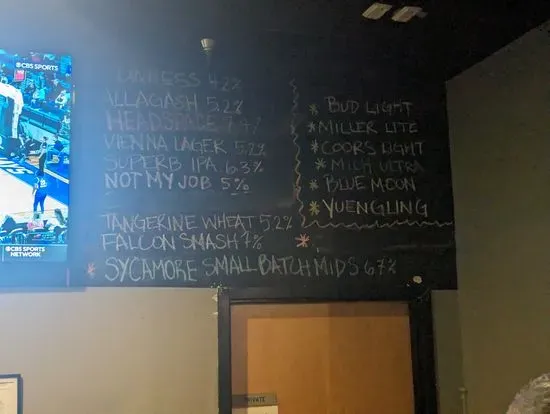 CBS SPORTS
GUINNESS 4.2%
ALLAGASH 5.2%
HEADSPACE
VIENNA LAGER 5.2%
SUPERB IPA 6.3%
NOT MY JOB 5%
TANGERINE WHEAT 5.2%
FALCON SMASH 7%
* SYCAMORE SMALL BATCH MIDS 6.7%
* BUD LIGHT
* MILLER LITE
* COORS LIGHT
* MICH ULTRA
* BLUE MOON
* YUENGLING
*
CBS SPORTS
NETWORK
PRIVATE